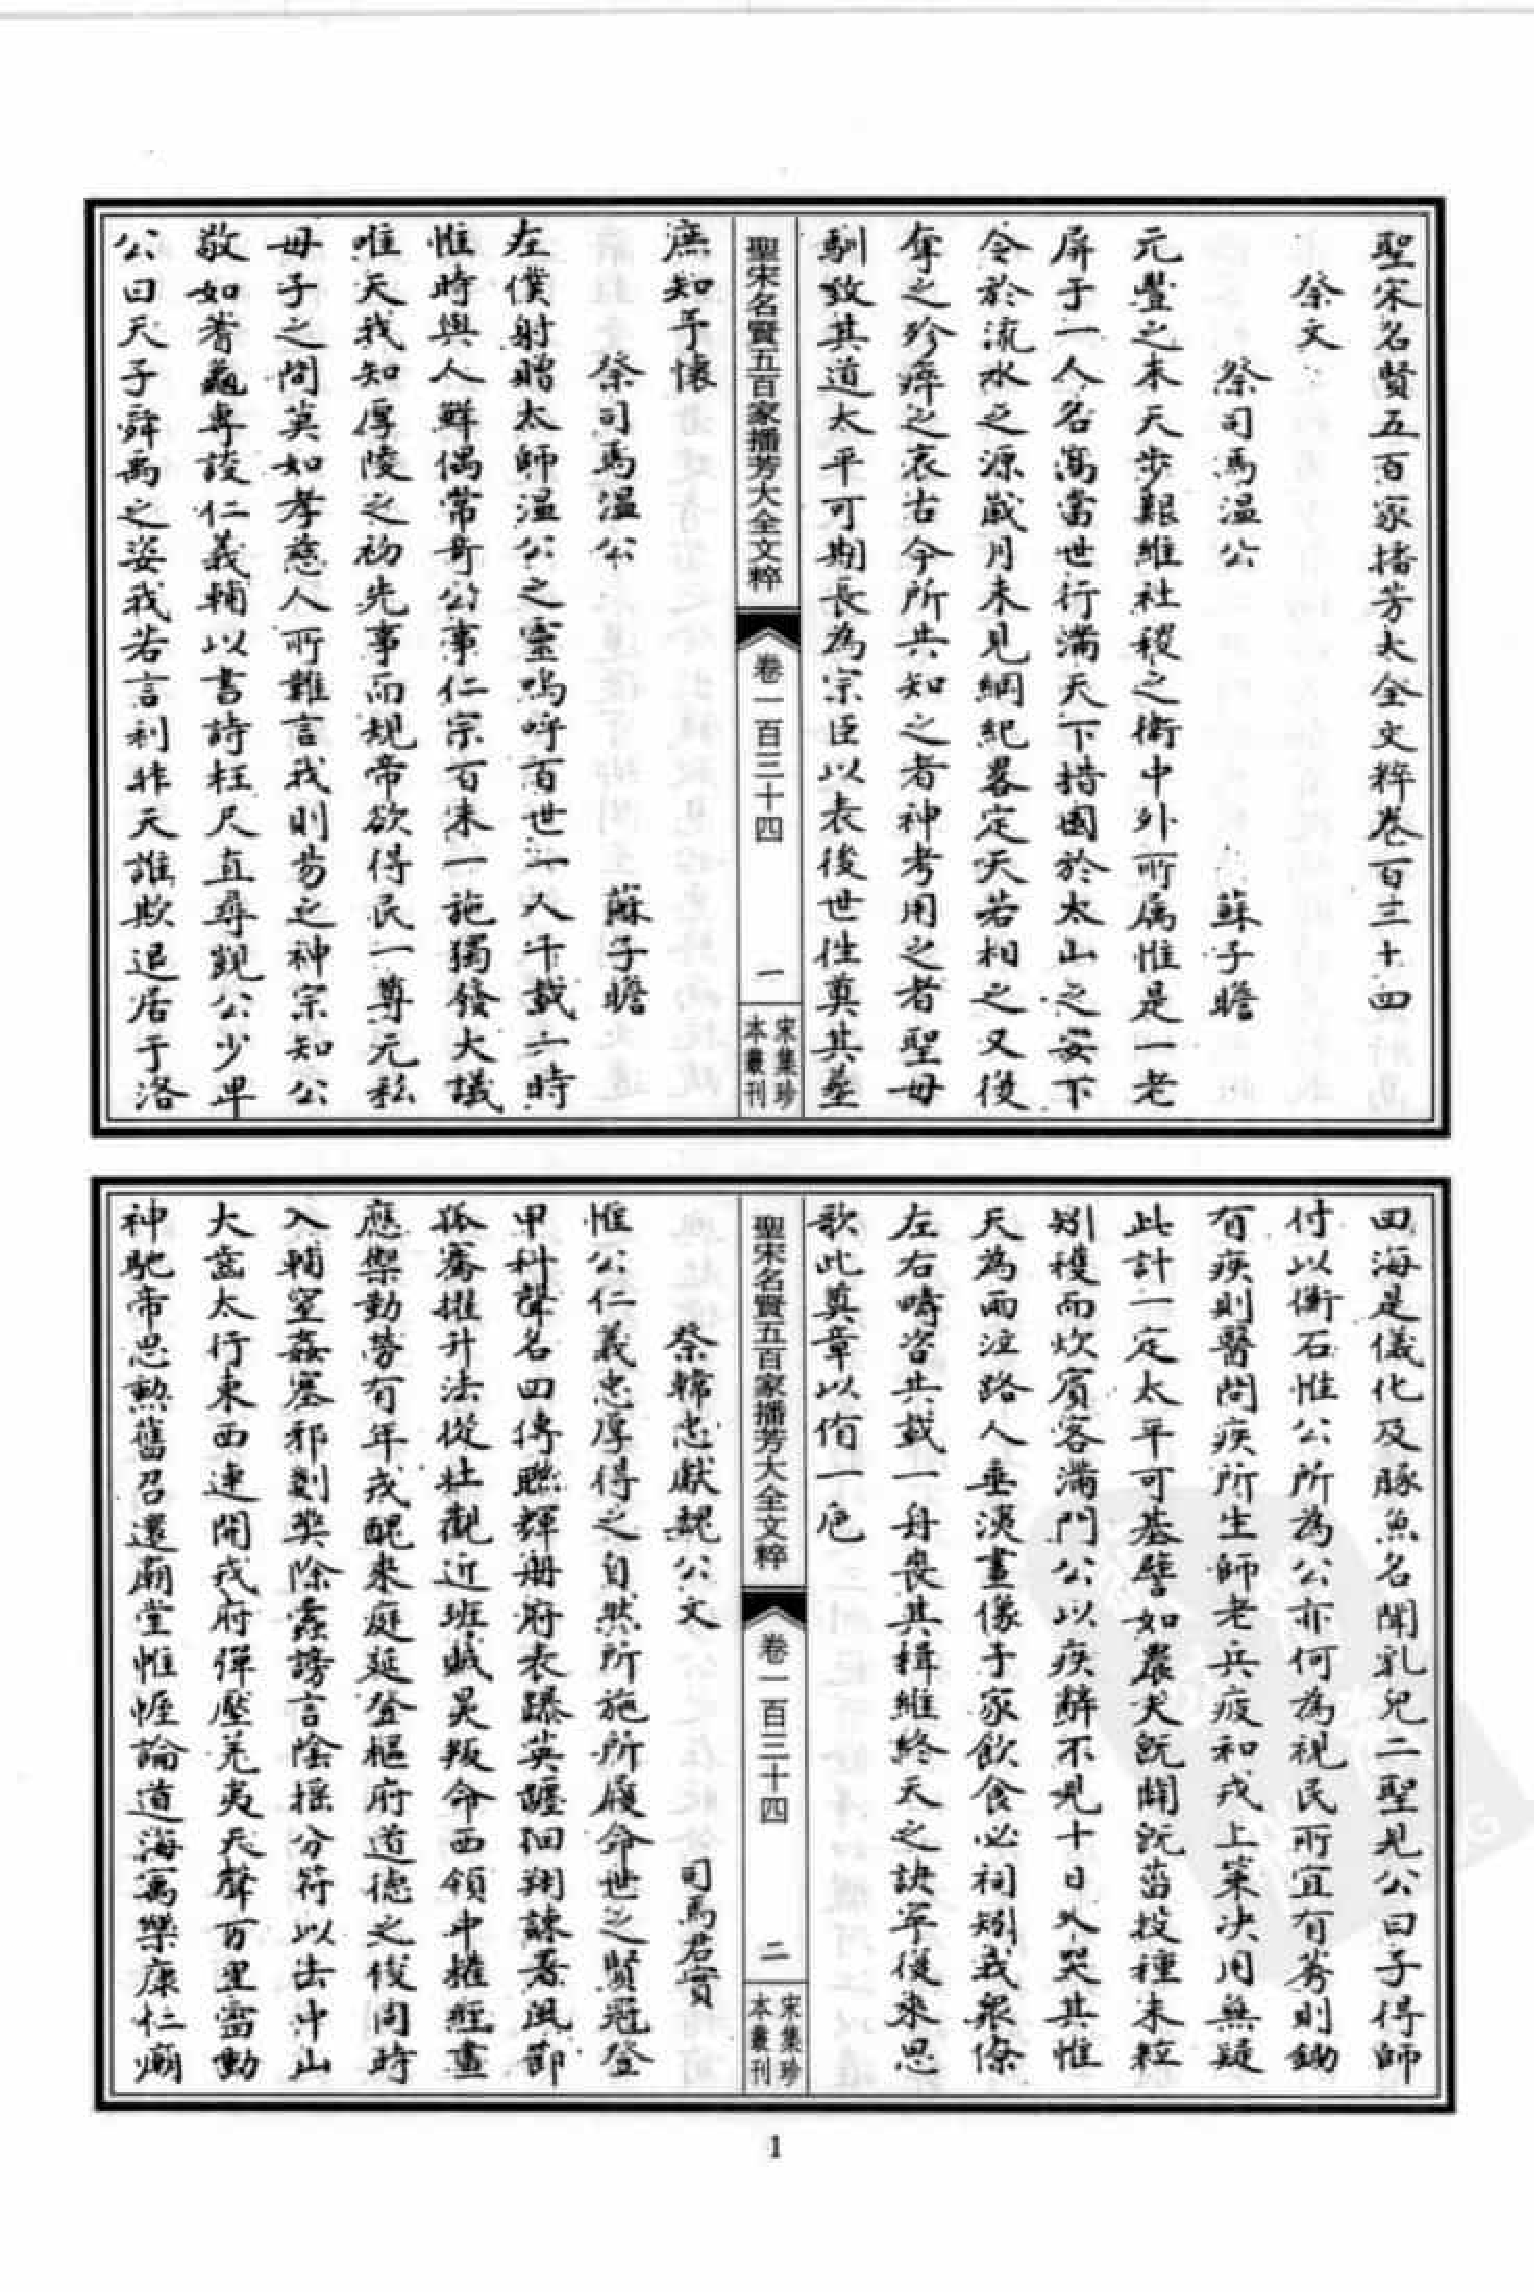 聖宋名賢五百家播芳大全文粹卷百三十四
祭文
祭司馬溫公 蘇子瞻
元豐之末天步艱維社稷之衛中外所属惟是一老
屏于一人名高當世行滿天下措國於太山之安下
令於流水之源歲月未見綱紀畧定天若相之又復
奪之殄瘁之哀古今所共知之者神考用之者聖母
馴致其道太平可期長為宗臣以表後世往奠其莖
聖宋名賢五百家播芳大全文粹
卷一百三十四
一
宋集珍
本叢刊
庶知予懷
祭司馬溫公 蘇子瞻
左僕射贈太師温公之靈嗚呼百世一人千載一時
惟時與人鮮偶常奇公事仁宗百未一施獨發大議
唯天我知厚陵之初先事而規帝欲得民一尊无私
母子之間莫如孝慈人所難言我則易之神宗知公
敬如蓍龜專談仁義輔以書詩枉尺直尋觀公少卑
公曰天子舜禹之姿我若言利非天誰欺退居于洛
四海是儀化及豚魚名聞乳兒二聖見公曰子得師
付以衡石惟公所為公亦何為視民所宜有莠則鋤
有疾則醫問疾所生師老兵疲和戎上策决用無疑
此計一定太平可基譬如農夫既闢既菑投種未粒
矧穫而炊賓客滿門公以疾辭不見十日入哭其惟
天為雨泣路人垂涕畫像于家飲食必祠矧我衆條
左右疇咨共載一舟喪其楫維終天之訣寧復來思
歌此奠章以侑一巵
聖宋名賢五百家播芳大全文粹
卷一百三十四
二
宋集珍
本叢刊
祭韓忠獻魏公文 司馬君實
惟公仁義忠厚得之自然所施所履命世之賢冠登
甲科聲名四傳聮輝册府表䟽英躔徊翔諫署風節
孤騫擢升法從壮觀近班賊昊叛命西領中權經畫
應禦勤勞有年戎醜來庭延登樞府道德之後同時
入輔窒姦塞邪剗獘除蠹謗言陰揺分符以出中山
大鹵太行東西連開戎府彈壓羌夷天聲万里雷動
神馳帝思勲舊召還廟堂惟幄論道海寓樂康仁廟
1